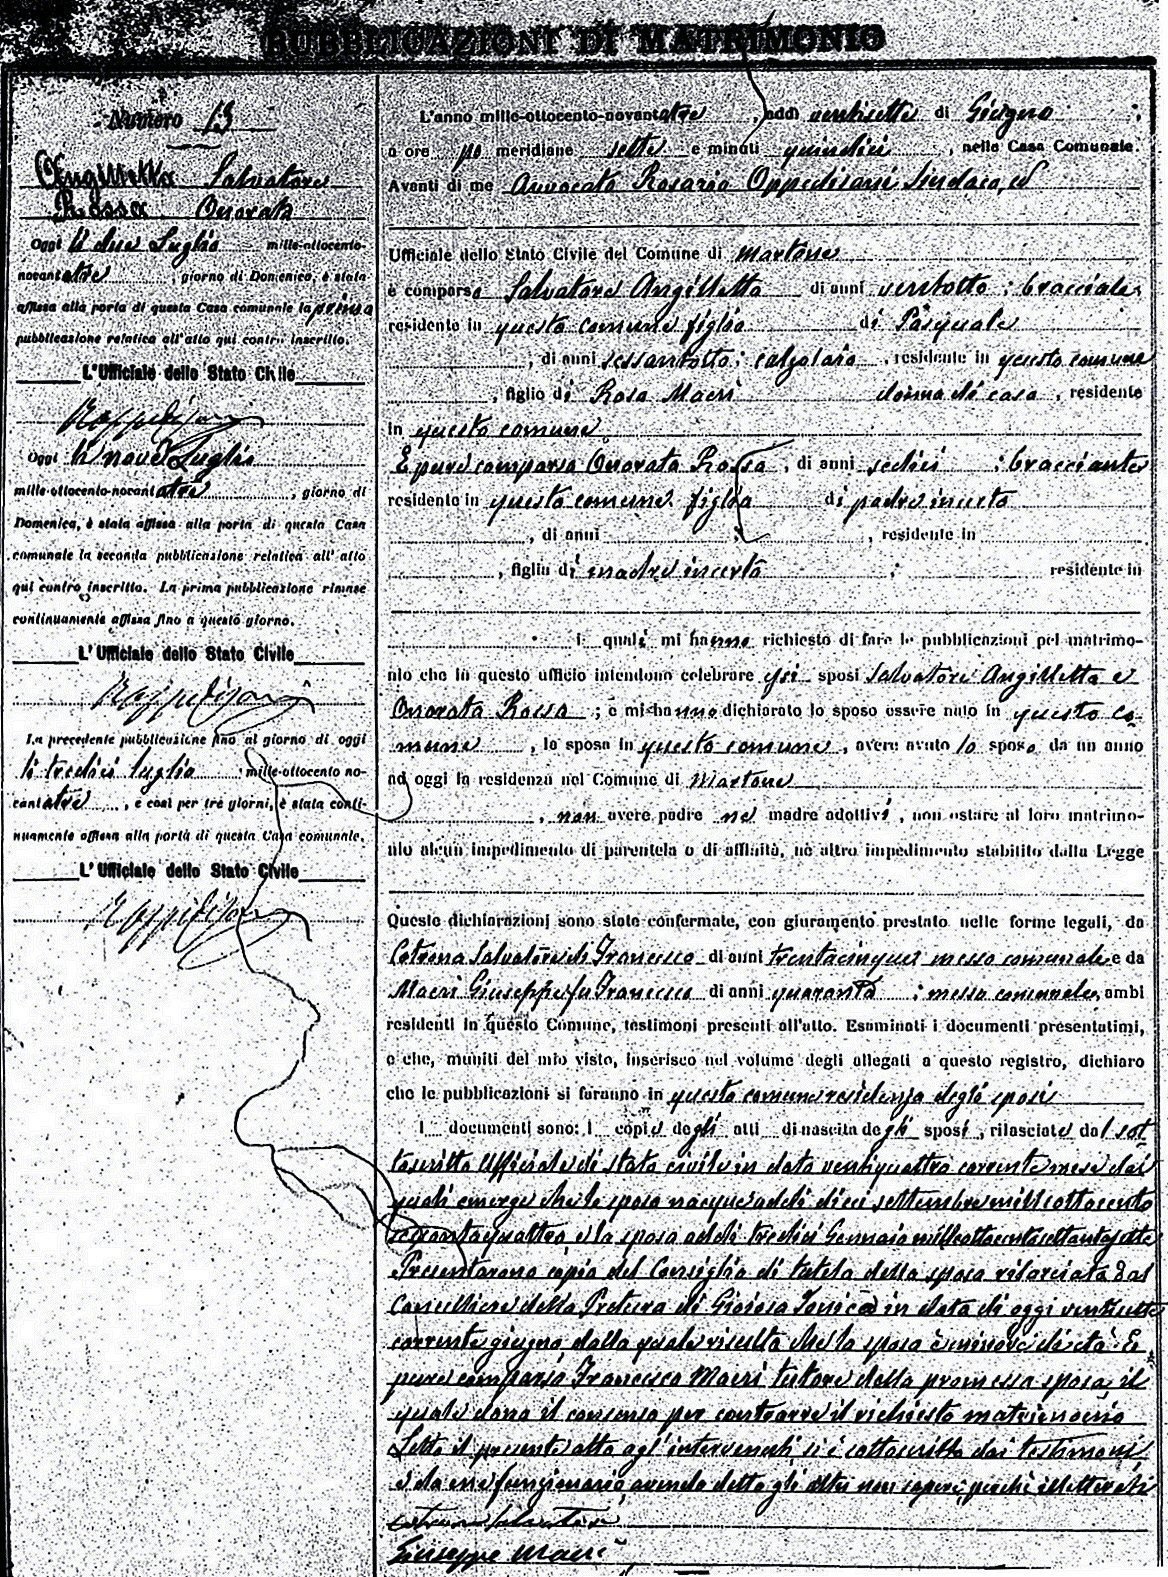 PUBBLICAZIONI DI MATRIMONIO
Numero 13
Angilletta Salvatore
Rossa Onorata
Oggi li due Luglio mille-ottocento-
nocantatre, giorno di Domenica, è stata
affissa alla porta di questa Casa comunale la prima
pubblicazione relativa all'atto qui contro inscritto.
L'Ufficiale dello Stato Civile
R Oppedisani
Oggi li nove Luglio
mille-ottocento-nocantatre, giorno di
Domenica, è stata affissa alla porta di questa Casa
comunale la seconda pubblicazione relativa all'atto
qui contro inscritto. La prima pubblicazione rimase
continuamente affissa fino a questo giorno.
L'Ufficiale dello Stato Civile
R Oppedisani
La precedente pubblicazione fino al giorno di oggi
li tredici luglio mille-ottocento no-
cantatre, e così per tre giorni, è stata conti-
nuamente affissa alla porta di questa Casa comunale.
L'Ufficiale dello Stato Civile
R Oppedisani
L'anno mille-ottocento-novantatre, addì ventisette di Giugno
a ore po meridiane sette e minuti quindici, nella Casa Comunale.
Avanti di me Avvocato Rosario Oppedisani Sindaco, ed
Ufficiale dello Stato Civile del Comune di Martone
è comparso Salvatore Angilletta di anni ventotto; bracciale,
residente in questo comune figlio di Pasquale
, di anni sessantotto; calzolaio, residente in questo comune
, figlio di Rosa Macrì donna di casa, residente
in questo comune
E pure comparsa Onorata Rossa, di anni sedici; bracciante
residente in questo comune figlia di padre incerto
, di anni ; , residente in
, figlia di madre incerta ; residente in
i quali mi hanno richiesto di fare le pubblicazioni pel matrimo-
nio che in questo ufficio intendono celebrare essi sposi Salvatore Angilletta e
Onorata Rossa; e mi hanno dichiarato lo sposo essere nato in questo co-
mune, la sposa in questo comune, avere avuto lo sposo da un anno
ad oggi la residenza nel Comune di Martone
, non avere padre nè madre adottivi, non ostare al loro matrimo-
nio alcun impedimento di parentela o di affinità, nè altro impedimento stabilito dalla Legge
Queste dichiarazioni sono state confermate, con giuramento prestato nelle forme legali, da
Cotrona Salvatore di Francesco di anni trentacinque messo comunale e da
Macrì Giuseppe fu Francesco di anni quaranta; messo comunale, ambi
residenti in questo Comune, testimoni presenti all'atto. Esaminati i documenti presentatimi,
e che, muniti del mio visto, inserisco nel volume degli allegati a questo registro, dichiaro
che le pubblicazioni si faranno in questo comune residenza degli sposi
I documenti sono: i copie degli atti di nascita degli sposi, rilasciate dal sot-
toscritto Ufficiale di stato civile in data ventiquattro corrente mese dai
quali emerge che lo sposo nacque addì dieci settembre mille ottocento
sessantaquattro e la sposa addì tredici Gennaio milleottocentosettantasette
Presentarono copia del Consiglio di tutela della sposa rilasciata dal
Cancelliere della Pretura di Gioiosa Ionica in data di oggi ventisette
corrente giugno dalla quale risulta che la sposa è minore di età. E
pure comparso Francesco Macrì tutore della promessa sposa, il
quale dona il consenso per contrarre il richiesto matrimonio
Letto il presente atto agl'intervenuti si è sottoscritto dai testimoni
e da me funzionario, avendo detto gli altri non sapere, perché illetterati
Cotrona Salvatore
Giuseppe Macrì